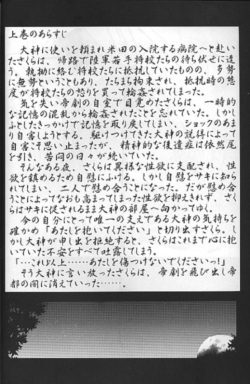 上巻のあらすじ
大神に使いを頼まれ米田の入院する病院へと赴いたさくらは、帰路で陸軍若手将校たちの待ち伏せに遭う。執拗に絡む将校たちに抵抗していたものの、多勢に無勢ということもあり、たちまち拘束され、抵抗時の態度が将校たちの怒りを買って輪姦されてしまった。
気を失い帝劇の自室で目覚めたさくらは、一時的な記憶の混乱から輪姦されたことを忘れていた。しかしふとしたきっかけで記憶を取り戻してしまい、ショックのあまり自害しようとする。駆けつけてきた大神の説得によって自害こそ思い止まったが、精神的な後遺症は依然尾を引き、苦悶の日々が続いていた。
そんなある夜、さくらは異様な性欲に支配され、性欲を鎮めるため自慰にふける。しかし自慰をサキに知られてしまい、二人で慰め合うことになった。だが慰め合うことによってなおも高まってしまった性欲を抑えきれず、さくらはサキに促されるまま大神の部屋へ向かってゆく。
今の自分にとって唯一の支えである大神の気持ちを確かめ「あたしを抱いてください」と切り出すさくら。しかし大神が申し出を拒絶すると、さくらはこれまで心に抱いていた不安をすべて吐露してしまう。
「…これ以上……あたしを傷つけないでくださいっ!」
そう大神に言い放ったさくらは、帝劇を飛び出し帝都の闇に消えていった……。